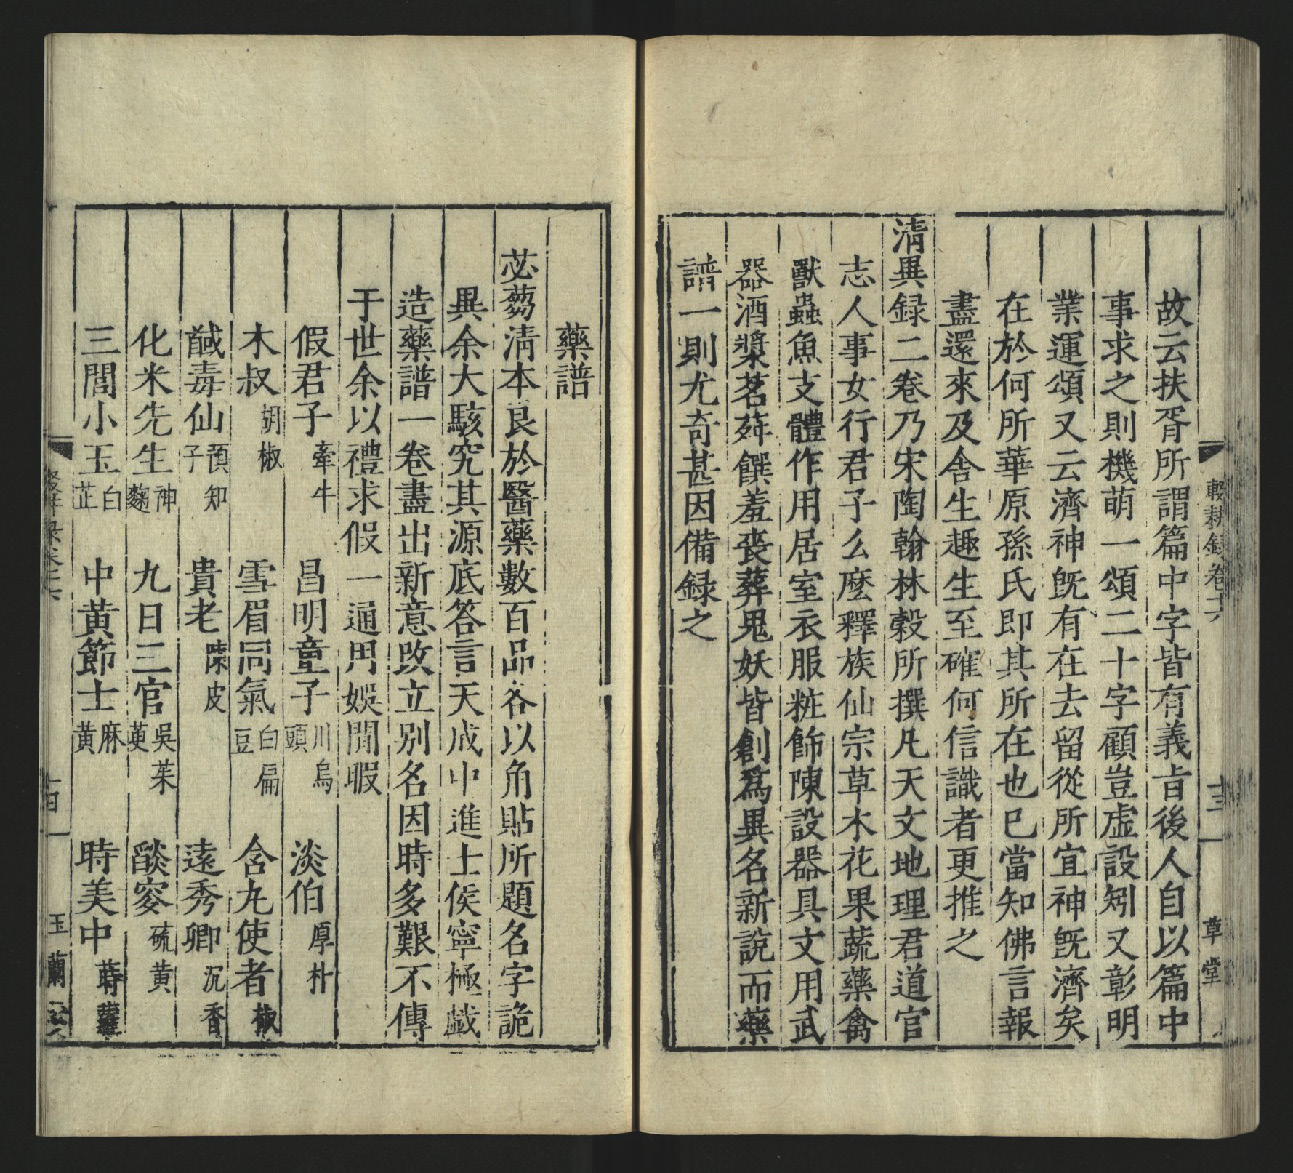 輟耕錄卷十六
十三
草堂
故云扶胥所謂篇中字皆有義㫖後人自以篇中
事求之則機萌一頌二十字顧豈虚設矧又彰明
業運頌又云濟神旣有在去留從所宜神旣濟矣
在於何所華原孫氏即其所在也已當知佛言報
盡還來及舍生趣生至確何信識者更推之
清異録二卷乃宋陶翰林穀所撰凡天文地理君道官
志人事女行君子么麼釋族仙宗草木花果蔬藥禽
獸蟲魚支體作用居室衣服粧飾陳設器具文用武
器酒漿茗荈饌羞喪葬鬼妖皆創爲異名新說而藥
譜一則尤奇甚因備録之
藥譜
苾蒭清本良於醫藥數百品各以角貼所題名字詭
異余大駭究其源底答言天成中進士侯寧極戯
造藥譜一卷盡出新意改立別名因時多艱不傳
于世余以禮求假一通用娛閒暇
假君子牽牛 昌明童子川烏頭 淡伯厚朴
木叔胡椒 雪眉同氣白扁豆 含丸使者椒
馘毒仙預知子 貴老陳皮 遠秀卿沉香
化米先生神麴 九日三官吳茱萸 燄叜硫黄
三閭小玉白芷 中黄節士麻黄 時美中蒔蘿
百一
玉蘭